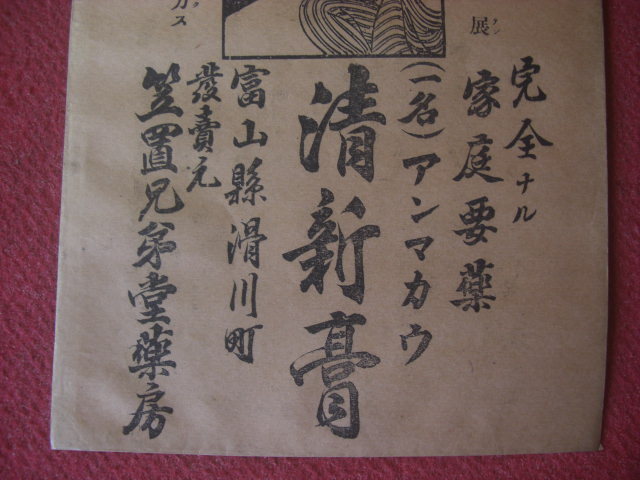 展
完全ナル
家庭要薬
(一名)アンマカウ
清新膏
富山縣滑川町
發賣元
笠置兄弟堂藥房
カス